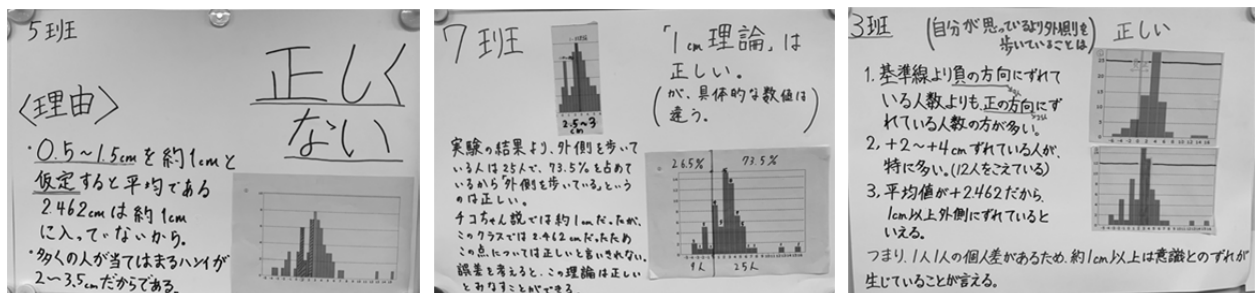 5班
正しく
ない
〈理由〉
・0.5~1.5cmを約1cmと
仮定すると平均である
2.462cmは約1cm
に入っていないから。
・多くの人が当てはまるハンイが
2~3.5cmだからである。
7班
2.5~3
cm
「1cm理論」は
正しい。
(が、具体的な数値は
違う。)
実験の結果より、外側を歩いて
いる人は25人で、73.5%を占めて
いるから「外側を歩いている」という
のは正しい。
チコちゃん説では約1cmだったが、
このクラスでは2.462cmだったため
この点については正しいと言いきれない。
誤差を考えると、この理論は正しい
とみなすことができる。
26.5%
73.5%
9人
25人
3班
(自分が思っているより外側を
歩いていることは)
正しい
1. 基準線より負の方向にずれて
いる人数よりも、正の方向にず
れている人数の方が多い。
2, +2~+4cmずれている人が、
特に多い。(12人をこえている)
3, 平均値が+2.462だから、
1cm以上外側にずれていると
いえる。
つまり、1人1人の個人差があるため、約1cm以上は意識とのずれが
生じていることが言える。